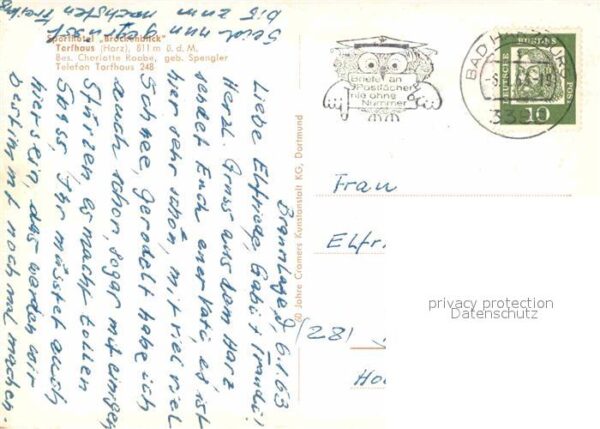 Sporthotel „Brockenblick"
Torfhaus (Harz), 811 m ü. d. M.
Bes. Charlotte Raabe, geb. Spengler
Telefon Torfhaus 248
60 Jahre Cramers Kunstanstalt KG, Dortmund
Braunlage, 6.1.63
Liebe Elfriede, Gabi u. Traudi!
Herzl. Gruss aus dem Harz
sendet Euch euer Kati, es ist
hier sehr schön, mit viel viel
Schnee, gerodelt habe ich
auch schon, sogar mit einigen
Stürzen, es macht tollen
Spass, Ihr müsstet auch
hier sein, das werden wir
bestimmt noch mal machen.
Seid nun gegrüsst
bis zum nächsten Freitag
Briefe an
Postfächer
nie ohne
Nummer
BAD HARZBURG
338
DEUTSCHE
BUNDESPOST
10
Frau
Elfr
(28)
Ho
privacy protection
Datenschutz